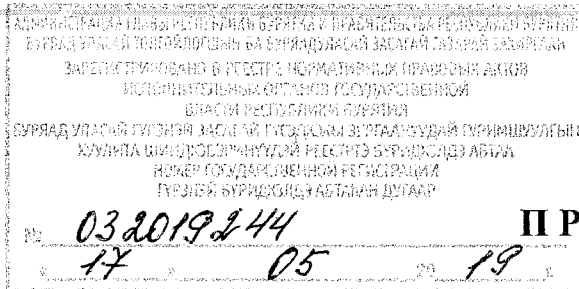 АДМИНИСТРАЦИЯ ГЛАВЫ РЕСПУБЛИКИ БУРЯТИЯ И ПРАВИТЕЛЬСТВА РЕСПУБЛИКИ БУРЯТИЯ
БУРЯАД УЛАСАЙ ТОЛГОЙЛОГШЫН БА БУРЯАД УЛАСАЙ ЗАСАГАЙ ГАЗАРАЙ ЗАХИРГААН
ЗАРЕГИСТРИРОВАНО В РЕЕСТРЕ НОРМАТИВНЫХ ПРАВОВЫХ АКТОВ
ИСПОЛНИТЕЛЬНЫХ ОРГАНОВ ГОСУДАРСТВЕННОЙ
ВЛАСТИ РЕСПУБЛИКИ БУРЯТИЯ
БУРЯАД УЛАСАЙ ГҮРЭНЭЙ ЗАСАГАЙ
РЕЕСТРТЭ БҮРИДХЭЛДЭ АБТАА
НОМЕР ГОСУДАРСТВЕННОЙ РЕГИСТРАЦИИ
ГҮРЭНЭЙ БҮРИДХЭЛДЭ АБТАҺАН ДУГААР
№ 032019244 ПР
« 17 » 05 20 19 г.